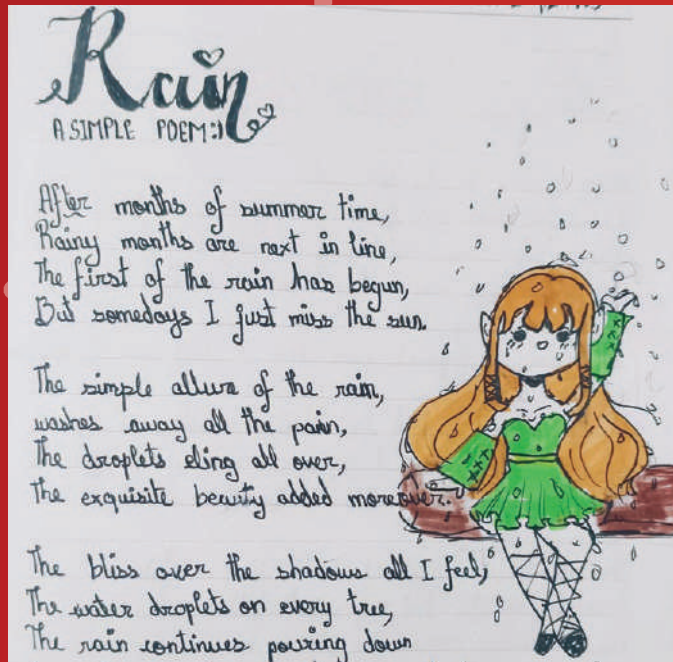 Rain
A SIMPLE POEM:)
After months of summer time,
Rainy months are next in line,
The first of the rain has begun,
But somedays I just miss the sun.
The simple allure of the rain,
washes away all the pain,
The droplets cling all over,
The exquisite beauty added moreover.
The bliss over the shadows all I feel,
The water droplets on every tree,
The rain continues pouring down